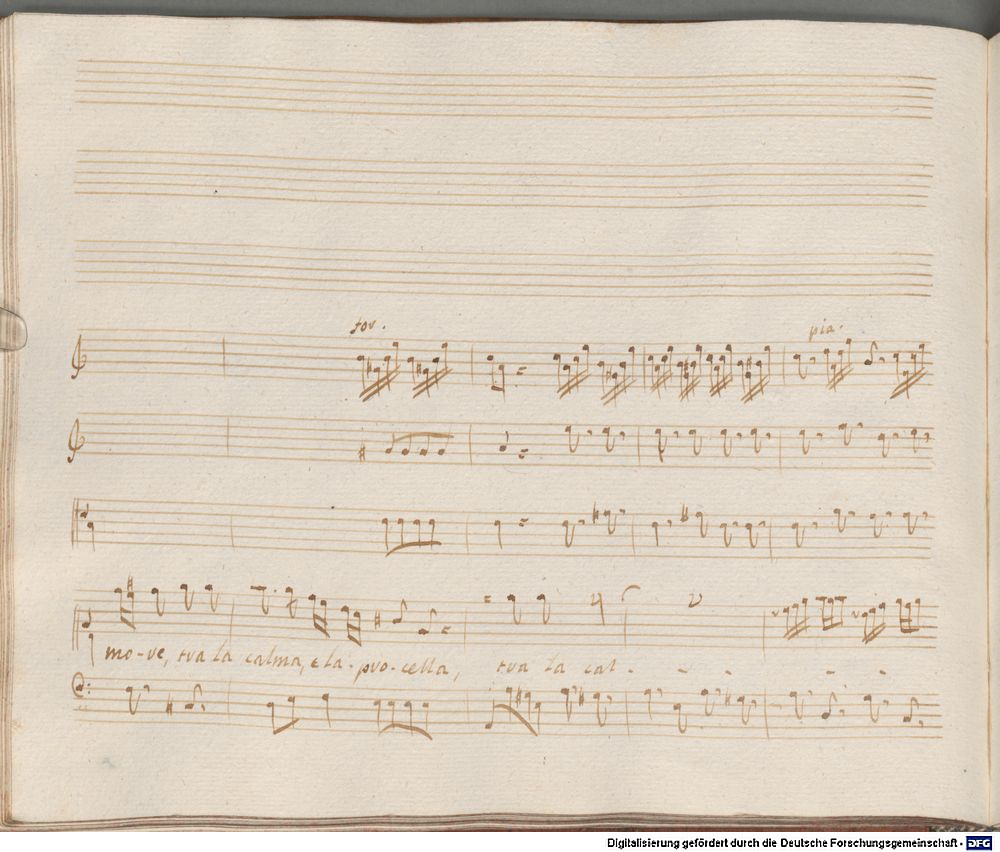 for.
pia.
mo-ve, tra la calma, e la-pro-cella, tra la cal-
Digitalisierung gefördert durch die Deutsche Forschungsgemeinschaft - DFG